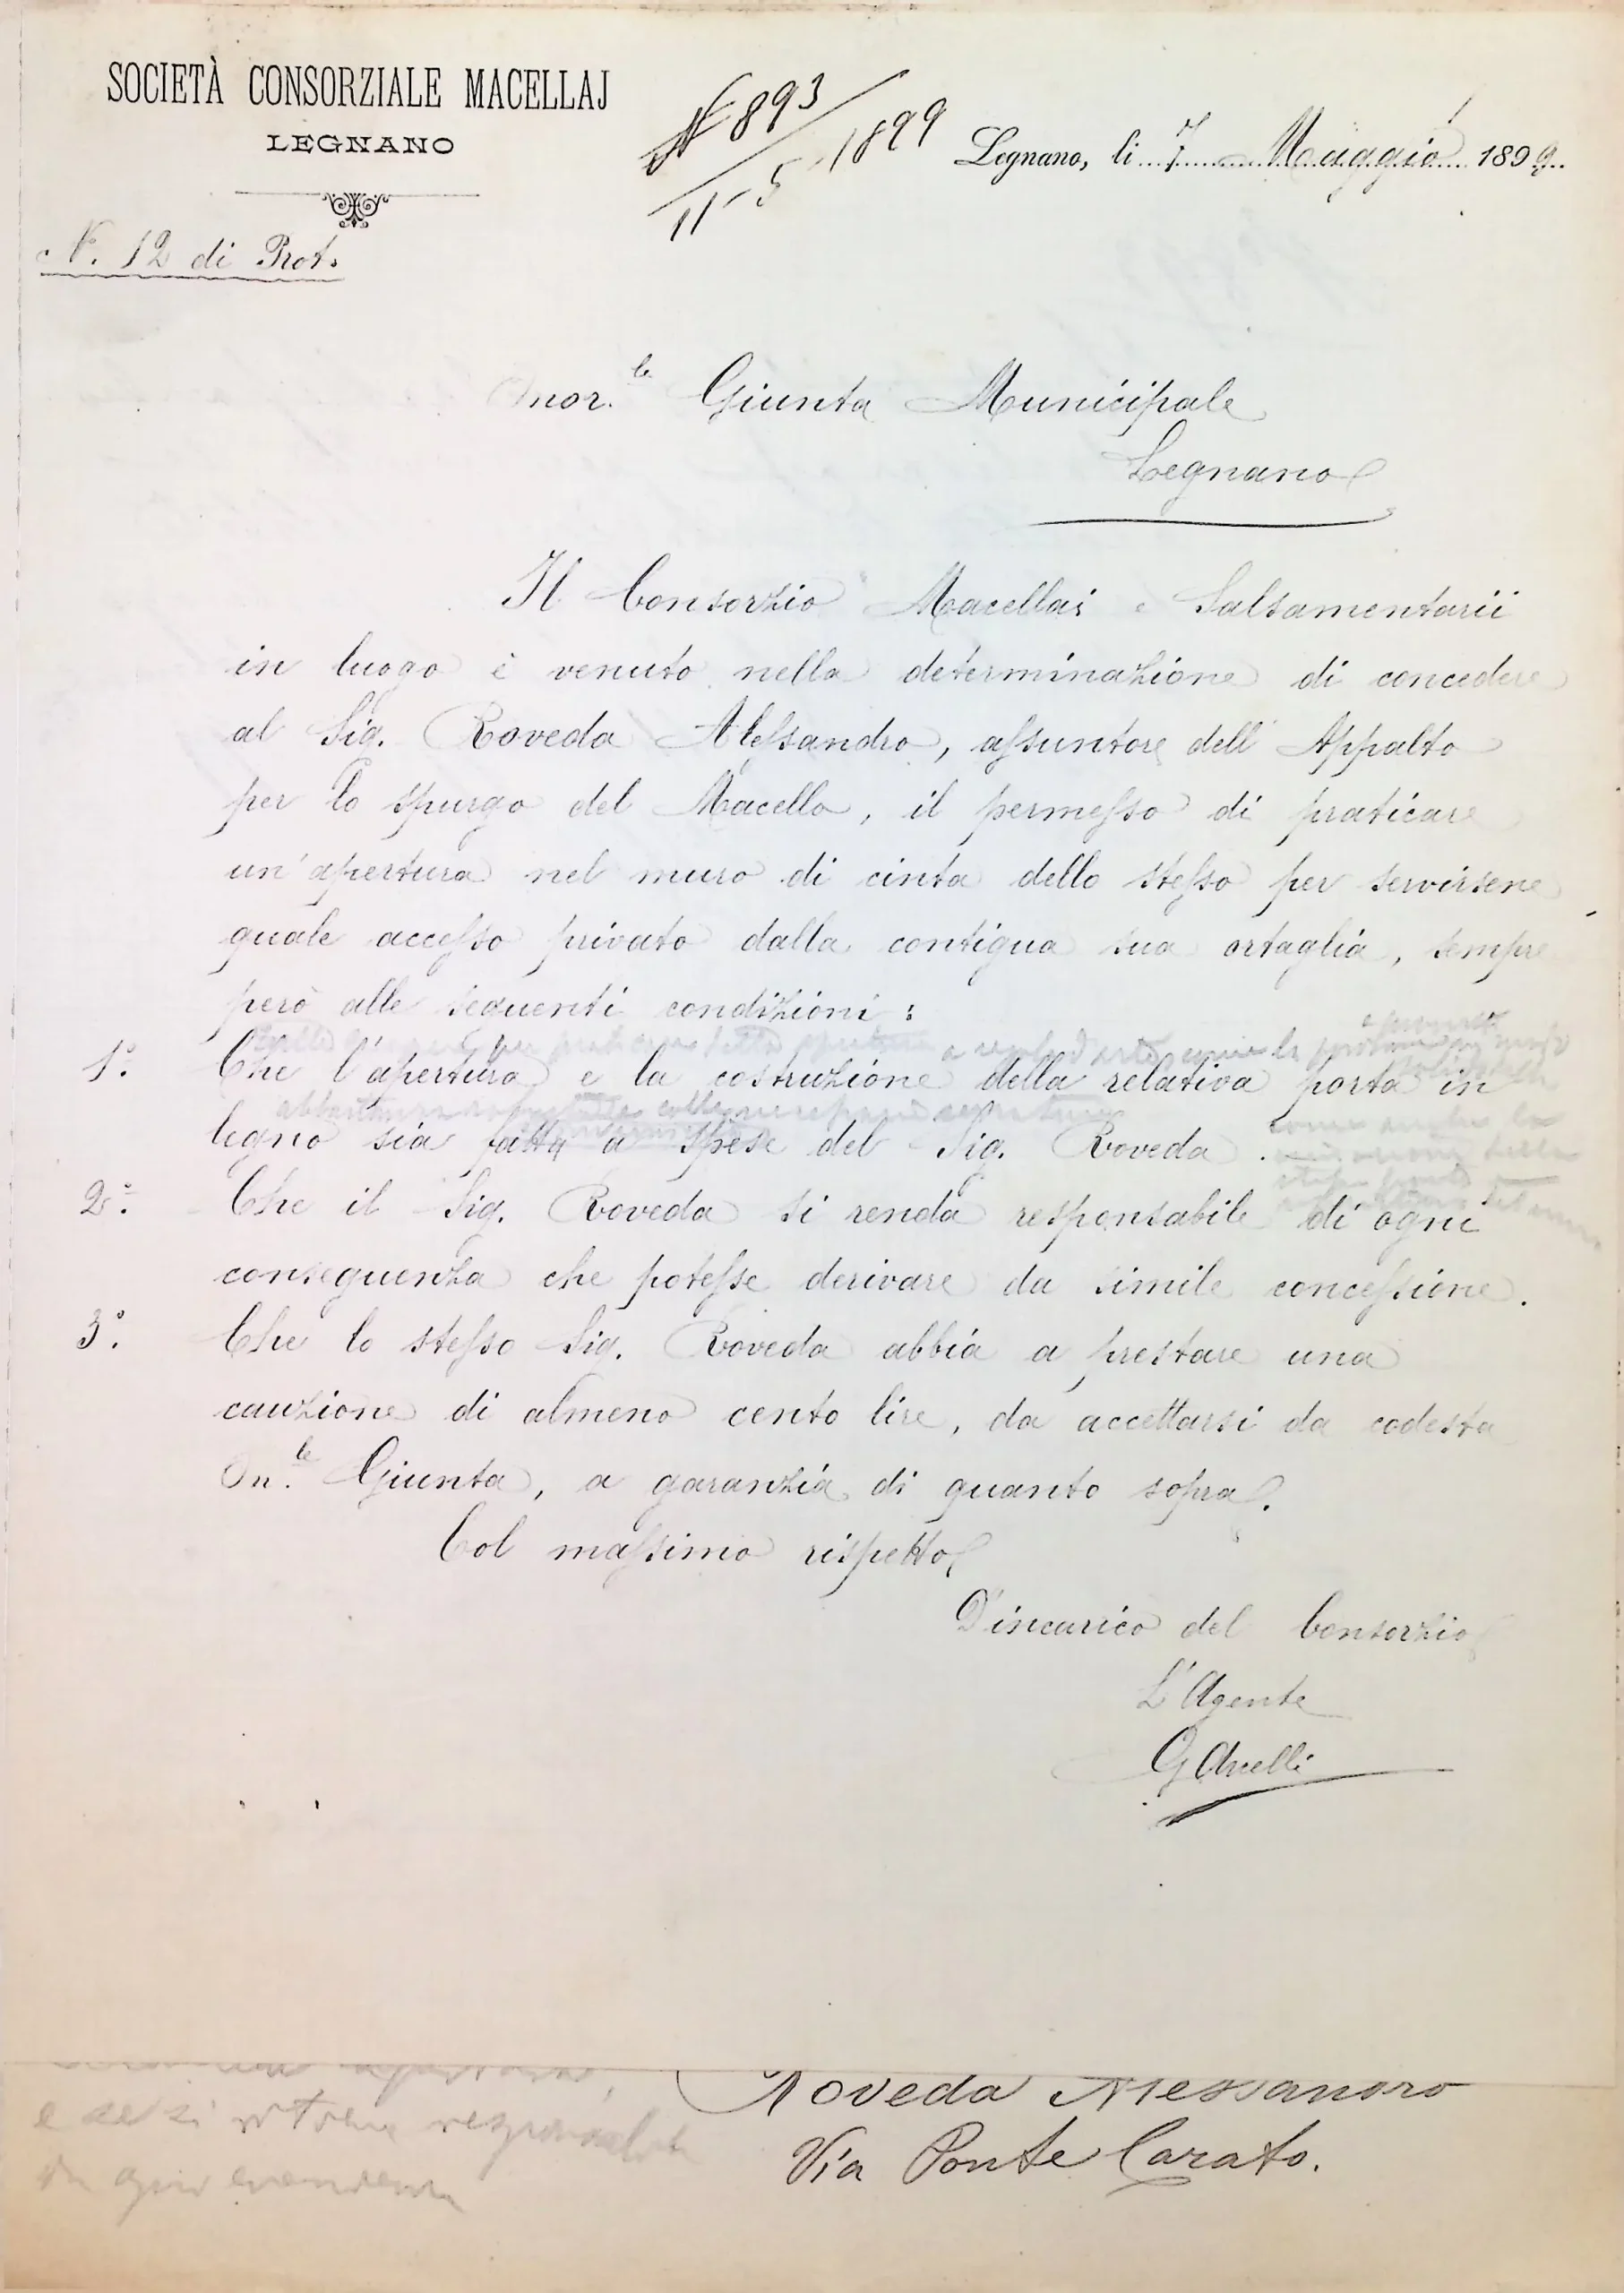 SOCIETÀ CONSORZIALE MACELLAJ
LEGNANO
N. 12 di Prot.
N 893
11-5-1899
Legnano, li 7 Maggio 1899.
Onor.le Giunta Municipale
Legnano
Il Consorzio Macellai e Salsamentarii
in luogo è venuto nella determinazione di concedere
al Sig. Roveda Alessandro, assuntore dell'Appalto
per lo spurgo del Macello, il permesso di praticare
un'apertura nel muro di cinta dello stesso per servirsene
quale accesso privato dalla contigua sua ortaglia, sempre
però alle seguenti condizioni:
1°. Che l'apertura e la costruzione della relativa porta in
legno sia fatta a spese del Sig. Roveda.
2°. Che il Sig. Roveda si renda responsabile di ogni
conseguenza che potesse derivare da simile concessione.
3°. Che lo stesso Sig. Roveda abbia a prestare una
cauzione di almeno cento lire, da accettarsi da codesta
On.le Giunta, a garanzia di quanto sopra.
Col massimo rispetto
D'incarico del Consorzio
L'Agente
Roveda Alessandro
Via Ponte Carato.